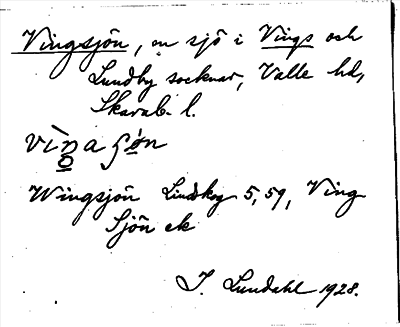 Vingsjön, en sjö i Vings och
Lundby socknar, Valle hd,
Skarab. l.
Wingsjön Lindskog 5, 59, Ving
Sjön ek
I. Lundahl 1928.